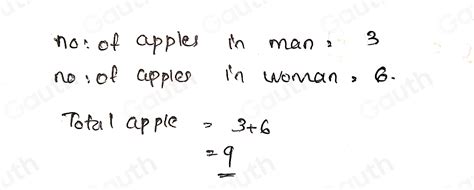 no: of apples in man = 3
no: of apples in woman = 6.
Total apple = 3+6
= 9